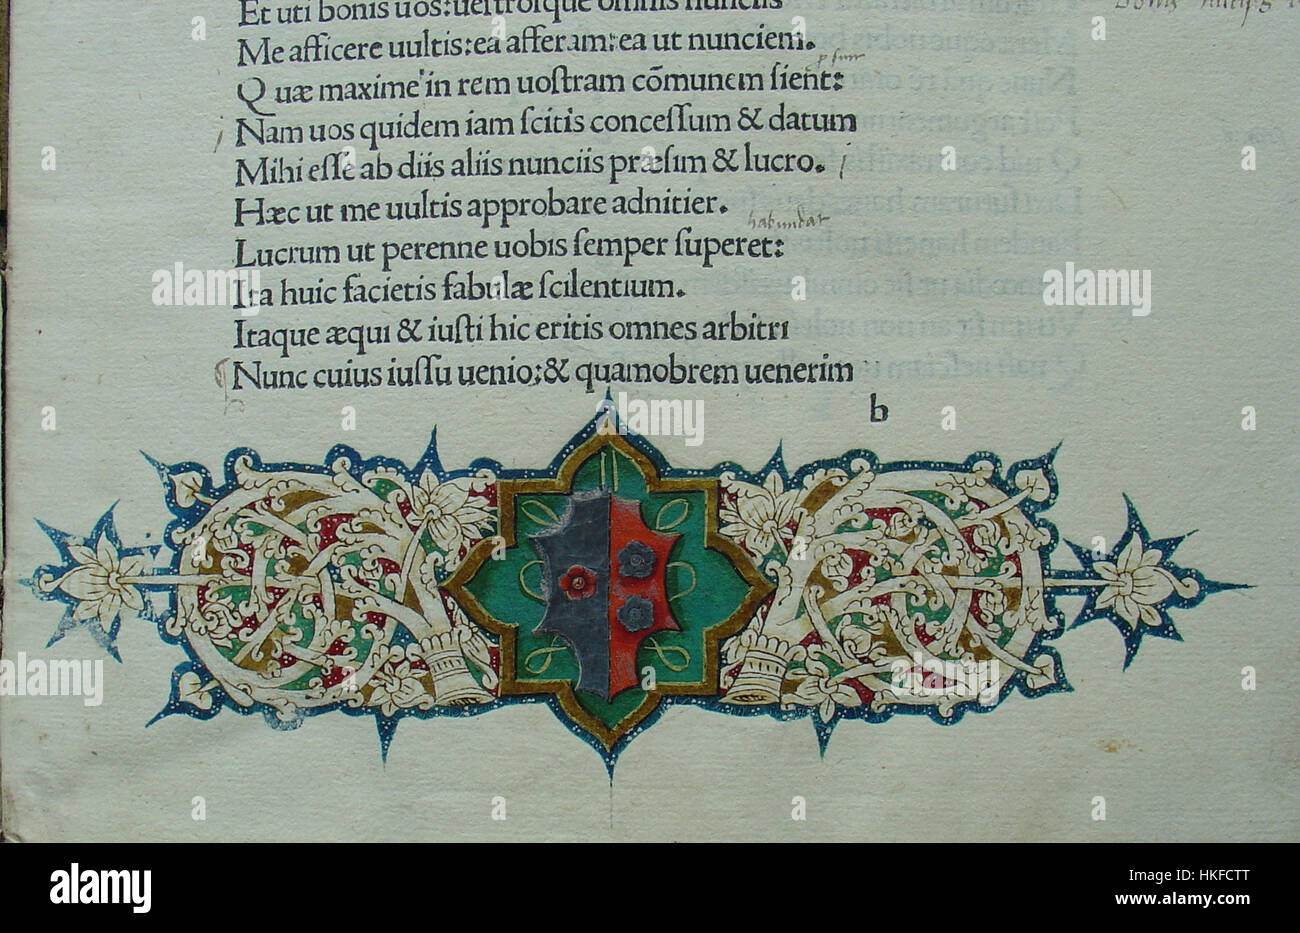 Et uti bonis uos: ueſtroſque omnis nunciis
Me afficere uultis: ea afferam: ea ut nunciem.
Quæ maxime in rem uoſtram cõmunem ſient:
Nam uos quidem iam ſcitis conceſſum & datum
Mihi eſſe ab diis aliis nunciis præſim & lucro.
Hæc ut me uultis approbare adnitier.
habundat
Lucrum ut perenne uobis ſemper ſuperet:
Ita huic facietis fabulæ ſcilentium.
Itaque æqui & iuſti hic eritis omnes arbitri
Nunc cuius iuſſu uenio: & quamobrem uenerim
b
alamy
Image ID: HKFCTT
www.alamy.com